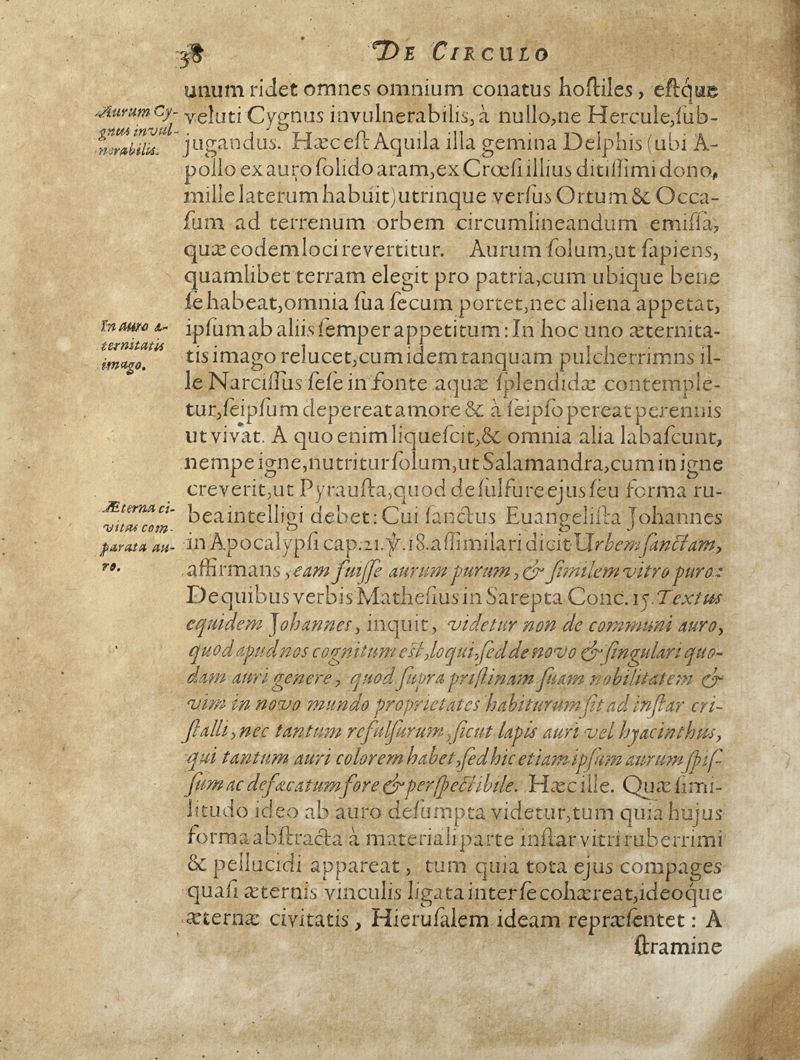 38 DE CIRCULO
unum ridet omnes omnium conatus hoſtiles, eſtque
Aurum Cy-
gnus invul-
nerabilis.
veluti Cygnus invulnerabilis, à nullo, ne Hercule, ſub-
jugandus. Hæc eſt Aquila illa gemina Delphis (ubi A-
pollo ex auro ſolido aram, ex Crœſi illius ditiſſimi dono,
mille laterum habuit) utrinque verſus Ortum & Occa-
ſum ad terrenum orbem circumlineandum emiſſa,
quæ eodem loci revertitur. Aurum ſolum, ut ſapiens,
quamlibet terram elegit pro patria, cum ubique bene
ſe habeat, omnia ſua ſecum portet, nec aliena appetat,
In auro æ-
ternitatis
imago.
ipſum ab aliis ſemper appetitum: In hoc uno æternita-
tis imago relucet, cum idem tanquam pulcherrimns il-
le Narciſſus ſeſe in fonte aquæ ſplendidæ contemple-
tur, ſeipſum depereat amore & à ſeipſo pereat perennis
ut vivat. A quo enim liqueſcit, & omnia alia labaſcunt,
nempe igne, nutritur ſolum, ut Salamandra, cum in igne
creverit, ut Pyrauſta, quod de ſulfure ejus ſeu forma ru-
Æterna ci-
vitas com-
parata au-
ro.
bea intelligi debet: Cui ſanctus Euangeliſta Johannes
in Apocalypſi cap. 21. ℣. 18. aſſimilari dicit Urbem ſanctam,
affirmans, eam fuiſſe aurum purum, & ſimilem vitro puro:
De quibus verbis Matheſius in Sarepta Conc. 15. Textus
equidem Johannes, inquit, videtur non de communi auro,
quod apud nos cognitum eſt, loqui, ſed de novo & ſingulari quo-
dam auri genere, quod ſupra priſtinam ſuam nobilitatem &
vim in novo mundo proprietates habiturum ſit ad inſtar cri-
ſtalli, nec tantum refulſurum, ſicut lapis auri vel hyacinthus,
qui tantum auri colorem habet, ſed hic etiam ipſum aurum ſpiſ-
ſum ac defæcatum fore & perſpectibile. Hæc ille. Quæ ſimi-
litudo ideo ab auro deſumpta videtur, tum quia hujus
forma abſtracta à materiali parte inſtar vitri ruberrimi
& pellucidi appareat, tum quia tota ejus compages
quaſi æternis vinculis ligata inter ſe cohæreat, ideoque
æternæ civitatis, Hieruſalem ideam repræſentet: A
ſtramine